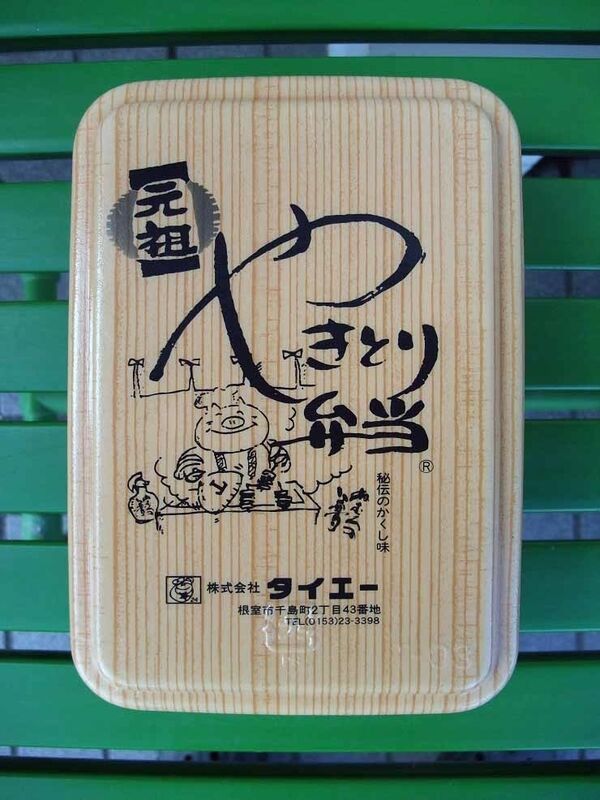 元祖
やきとり
弁当
®
秘伝のかくし味
株式会社 タイエー
根室市千島町2丁目43番地
TEL(0153)23-3398